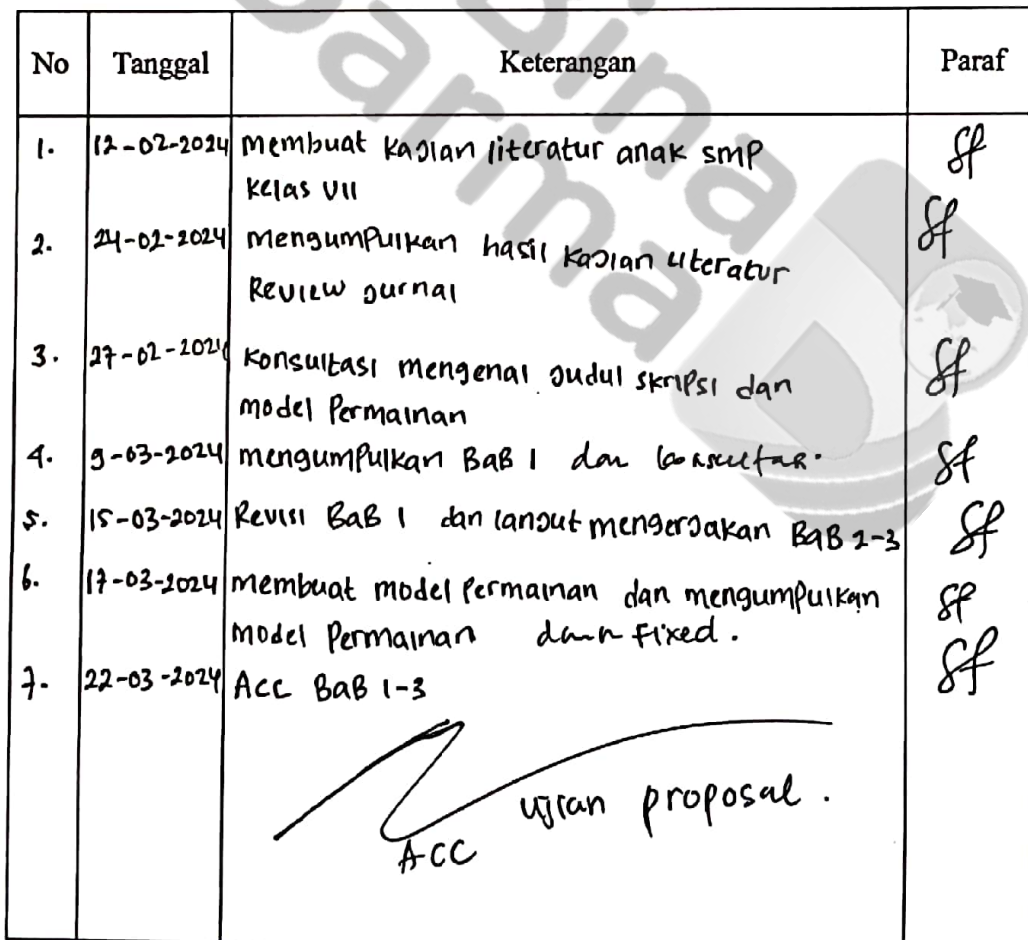 Bina
Darma
No Tanggal Keterangan Paraf
1. 12-02-2024 membuat kajian literatur anak smp
kelas VII
2. 24-02-2024 mengumpulkan hasil kajian literatur
Review jurnal
3. 27-02-2024 konsultasi mengenai judul skripsi dan
model Permainan
4. 9-03-2024 mengumpulkan BaB 1 dan konsultasi.
5. 15-03-2024 Revisi BaB 1 dan lanjut mengerjakan BaB 2-3
6. 17-03-2024 membuat model Permainan dan mengumpulkan
model Permainan Fixed.
7. 22-03-2024 Acc BaB 1-3
ACC ujian proposal.